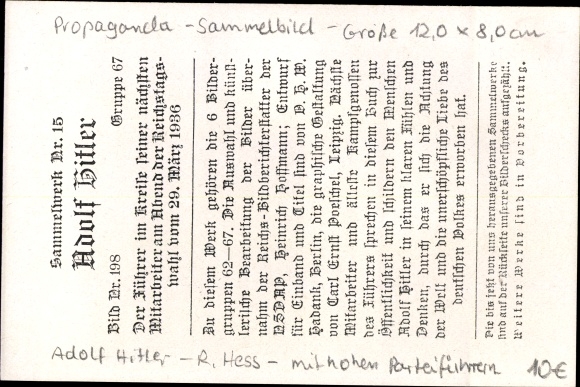 Propaganda - Sammelbild - Größe 12,0 x 8,0cm
Sammelwerk Nr. 15
Adolf Hitler
Bild Nr. 198 Gruppe 67
Der Führer im Kreise seiner nächsten
Mitarbeiter am Abend der Reichstags-
wahl vom 29. März 1936
Zu diesem Werk gehören die 6 Bilder-
gruppen 62–67. Die Auswahl und künst-
lerische Bearbeitung der Bilder über-
nahm der Reichs-Bildberichterstatter der
NSDAP, Heinrich Hoffmann; Entwurf
für Einband und Titel sind von O. H. W.
Hadank, Berlin, die graphische Gestaltung
von Carl Ernst Poeschel, Leipzig. Nächste
Mitarbeiter und älteste Kampfgenossen
des Führers sprechen in diesem Buch zur
Öffentlichkeit und schildern den Menschen
Adolf Hitler in seinem klaren Fühlen und
Denken, durch das er sich die Achtung
der Welt und die unerschöpfliche Liebe des
deutschen Volkes erworben hat.
Die bis jetzt von uns herausgegebenen Sammelwerke
sind auf der Rückseite unserer Bilderschecks aufgezählt.
Weitere Werke sind in Vorbereitung.
Adolf Hitler - R. Hess - mit hohen Parteiführern 10€